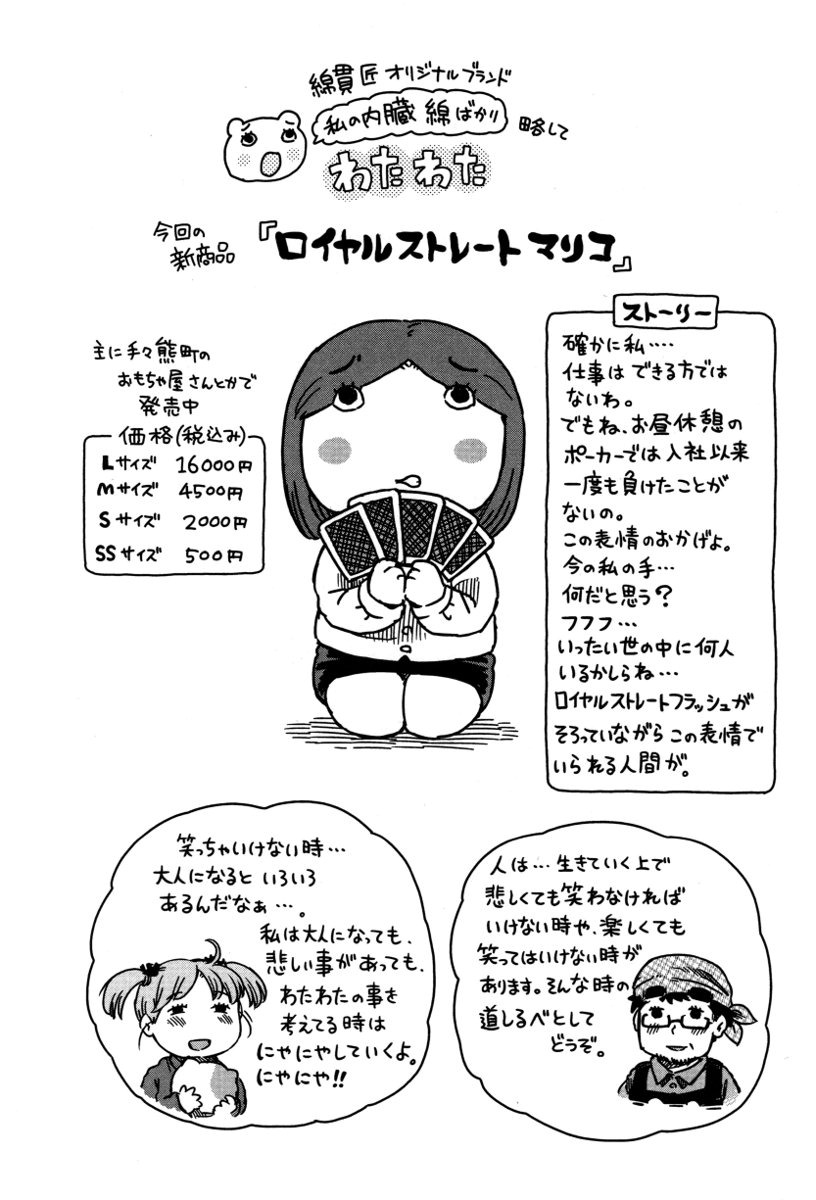 綿貫匠オリジナルブランド
私の内臓綿ばかり
略して
わたわた
今回の
新商品
『ロイヤルストレートマリコ』
主に手々熊町の
おもちゃ屋さんとかで
発売中
価格(税込み)
Lサイズ 16000円
Mサイズ 4500円
Sサイズ 2000円
SSサイズ 500円
ストーリー
確かに私‥‥
仕事はできる方では
ないわ。
でもね、お昼休憩の
ポーカーでは入社以来
一度も負けたことが
ないの。
この表情のおかげよ。
今の私の手…
何だと思う?
フフフ…
いったい世の中に何人
いるかしらね…
ロイヤルストレートフラッシュが
そろっていながらこの表情で
いられる人間が。
笑っちゃいけない時…
大人になるといろいろ
あるんだなぁ…。
私は大人になっても、
悲しい事があっても、
わたわたの事を
考えてる時は
にやにやしていくよ。
にやにや!!
人は…生きていく上で
悲しくても笑わなければ
いけない時や、楽しくても
笑ってはいけない時が
あります。そんな時の
道しるべとして
どうぞ。